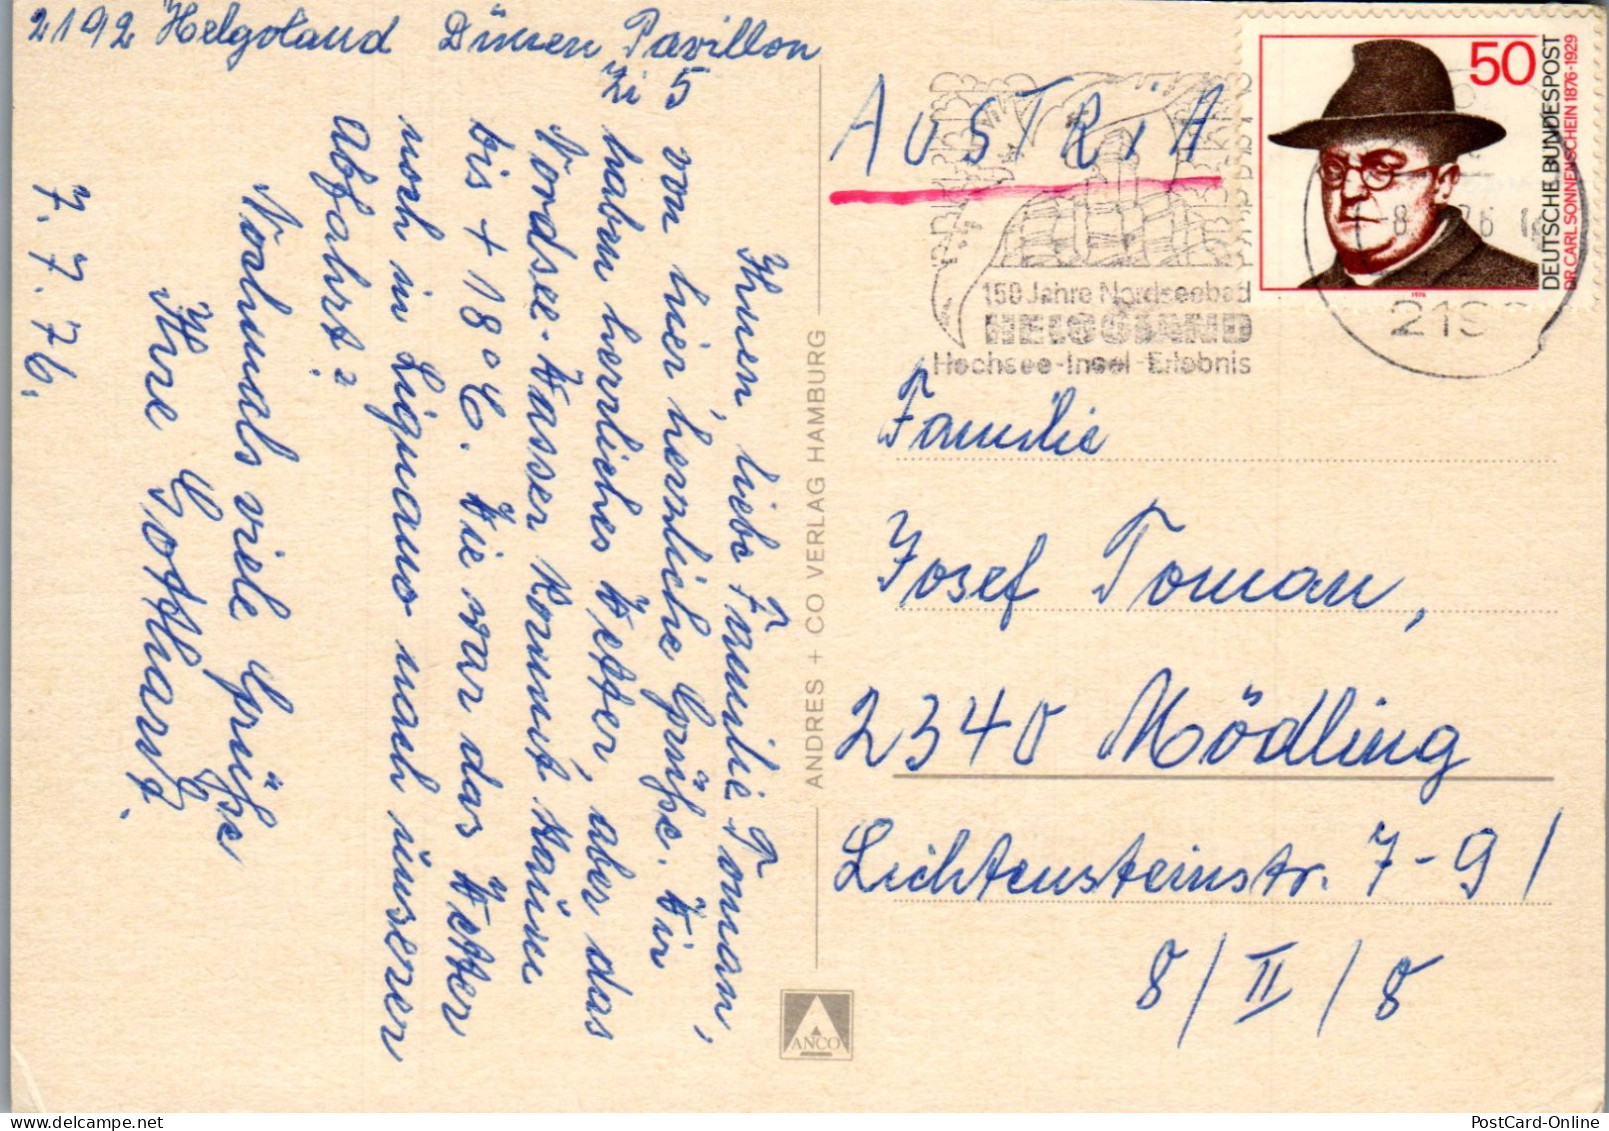 2192 Helgoland Dünen Pavillon
Zi 5
Ihnen, liebe Familie Toman,
von hier herzliche Grüße. Wir
haben herrliches Wetter, aber das
Nordsee-Wasser kommt kaum
bis + 18° C. Wie war das Wetter
noch in Lignano nach unserer
Abfahrt?
Nochmals viele Grüße
Ihre Gotthardt.
7.7.76.
ANDRES + CO VERLAG HAMBURG
ANCO
AUSTRIA
150 Jahre Nordseebad
HELGOLAND
Hochsee-Insel-Erlebnis
50
DEUTSCHE BUNDESPOST
DR. CARL SONNENSCHEIN 1876-1929
1976
2192
Familie
Josef Toman,
2340 Mödling
Lichtensteinstr. 7-9/
8/II/8
PostCard-Online